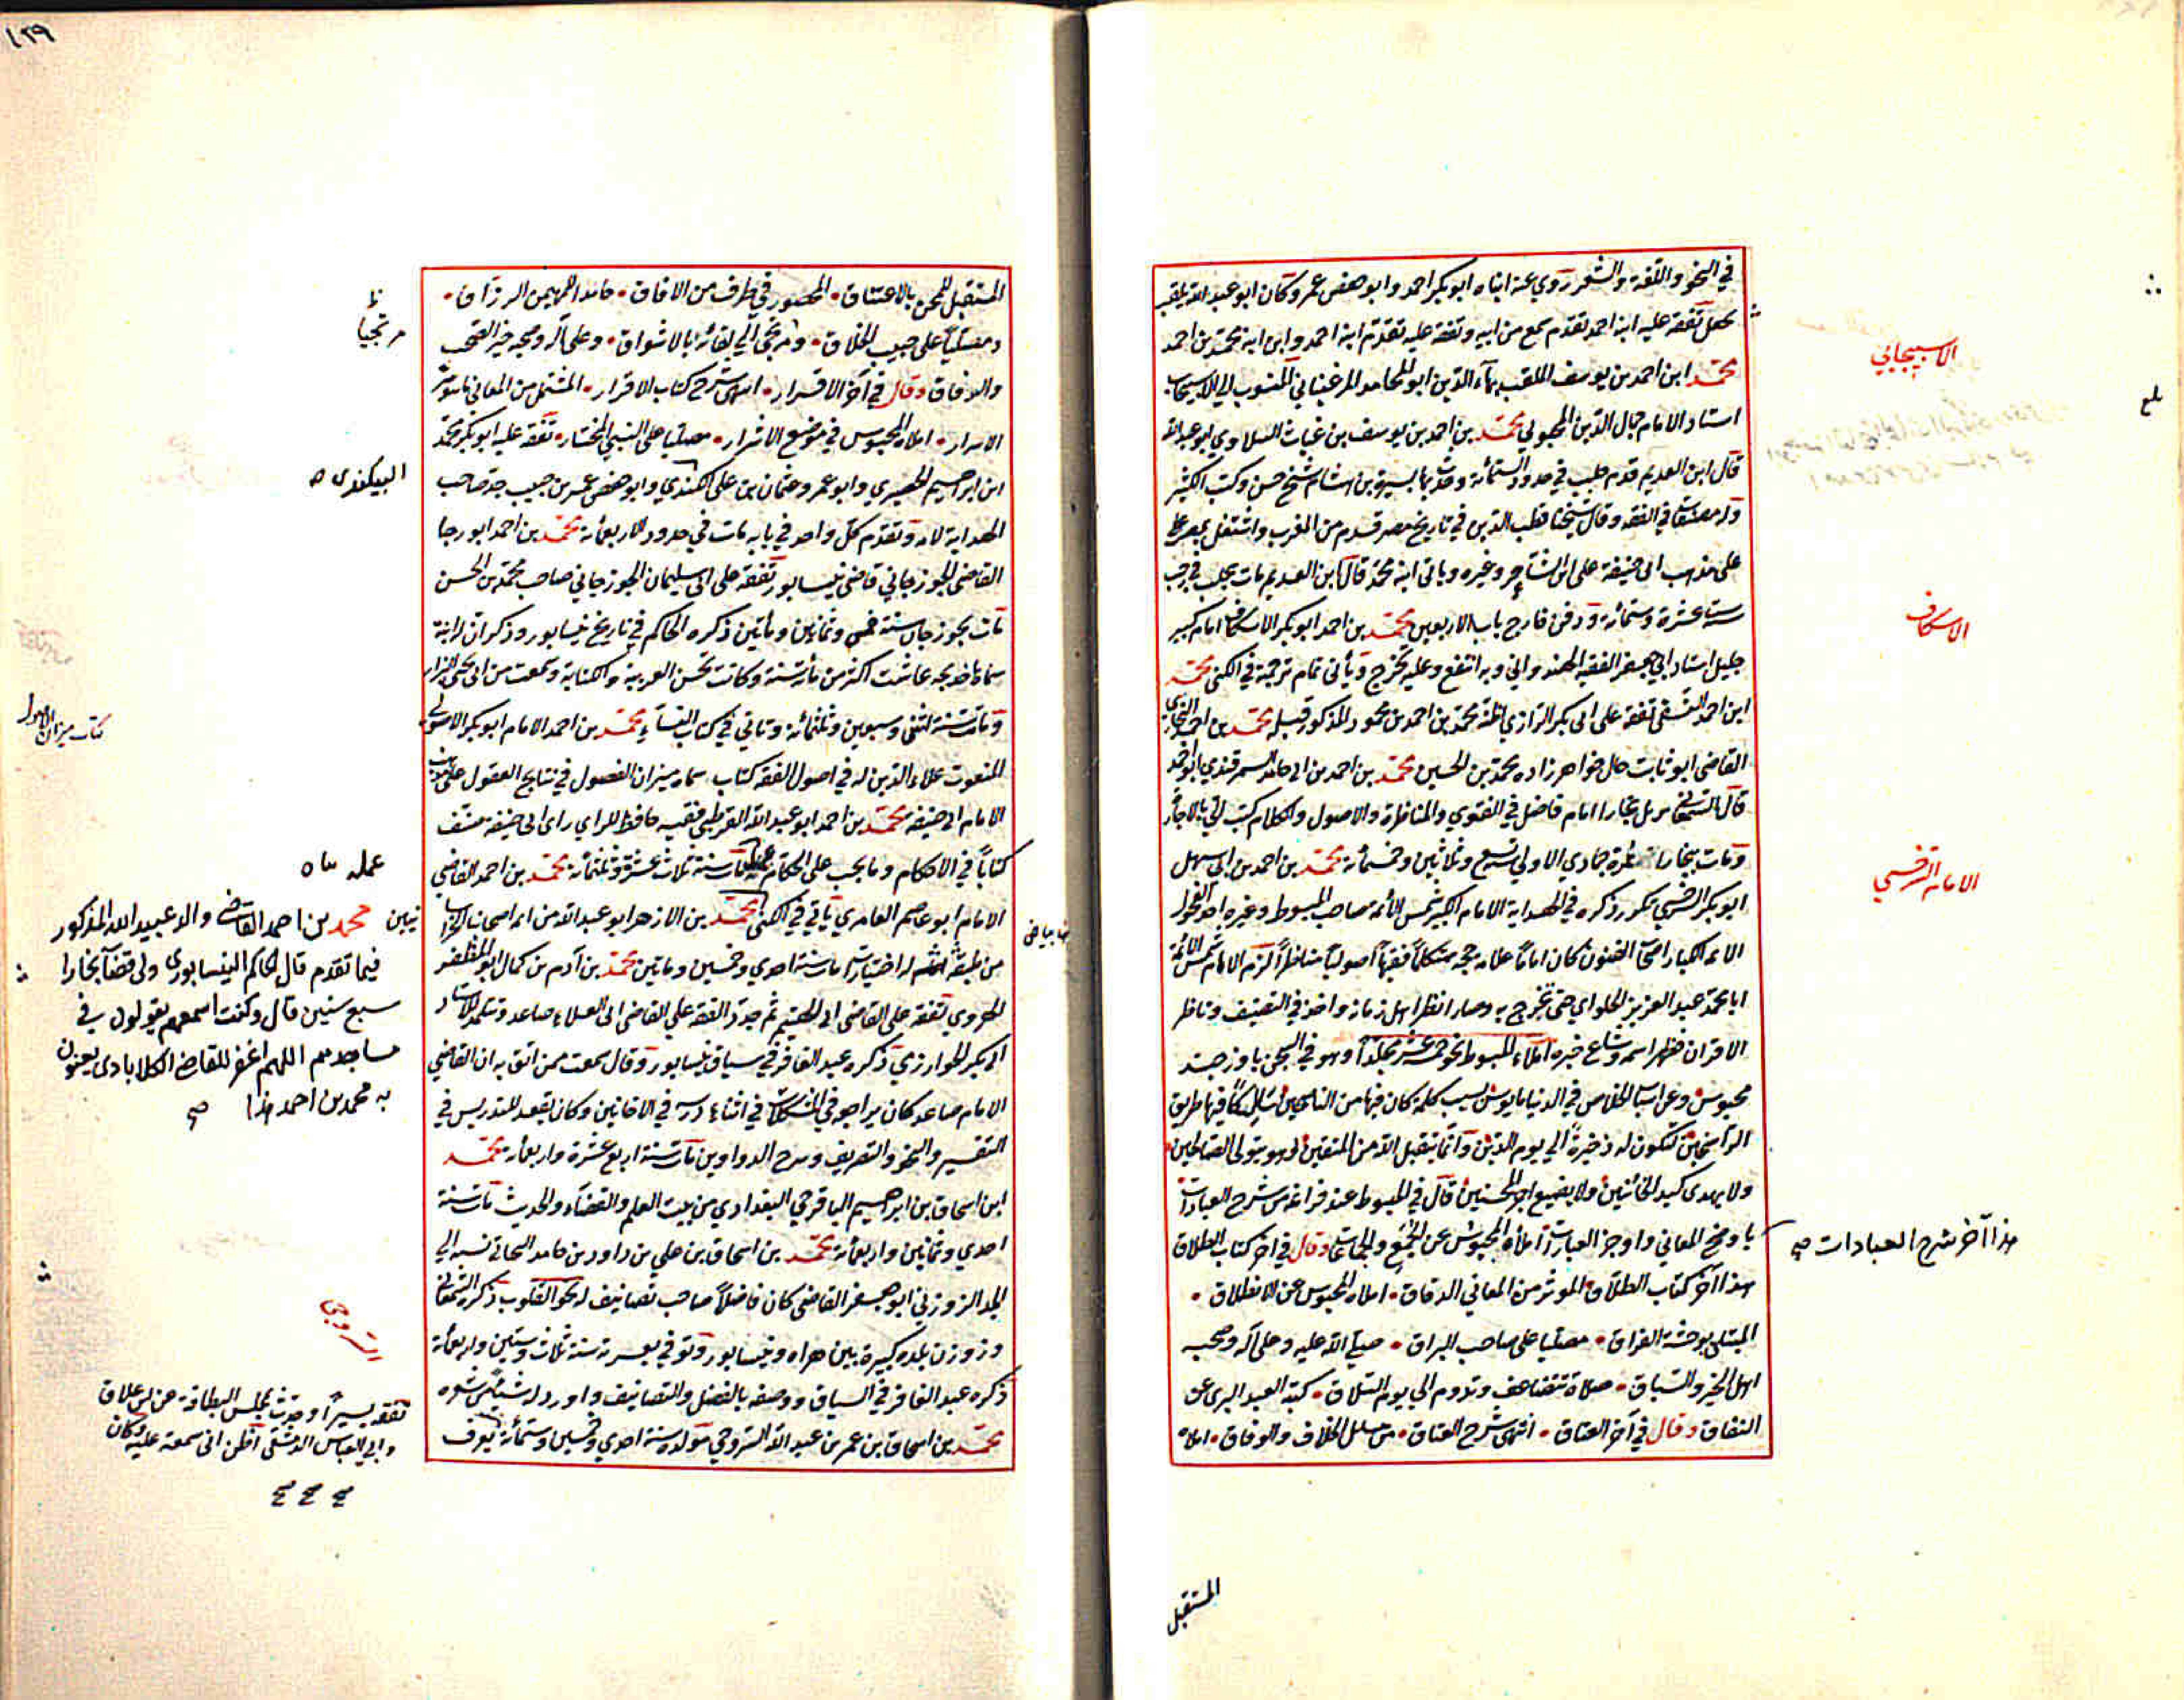 في النحو واللغة والشعر روي عنه ابناه ابو بكر احمد وابو حفص عمر وكان ابو عبد الله يلقب
تفقه عليه ابنه احمد تقدم سمع من ابيه وتفقه عليه تقدم ابنه احمد وابن ابنه محمد بن احمد
محمد ابن احمد بن يوسف الملقب بهاء الدين ابو المحامد المرغيناني المنسوب الي الاسبيجاب
استاد الامام جمال الدين المحبوبي محمد بن احمد بن يوسف بن غياث السلاوي ابو عبد الله
قال ابن العديم قدم حلب في حدود الستمائة وحدث بها بسيرة بن هشام شيخ حسن وكتب الكثير
وله مصنفات في الفقه وقال شيخنا قطب الدين في تاريخ مصر قدم من المغرب واشتغل بمصر
على مذهب ابي حنيفة على وغيره وياتى ابنه محمد قال ابن العديم مات بحلب في رجب
ستة عشرة وستمائة ودفن خارج باب الاربعين محمد بن احمد ابو بكر الاسكاف امام كبير
جليل استاد ابي جعفر الفقيه الهندواني وبه انتفع وعليه تخرج ويأتى تمام ترجمة في الكنى محمد
ابن احمد النسفي تفقه على ابى بكر الرازي اظنه محمد بن احمد بن محمود المذكور قبله محمد بن احمد البخاري
القاضى ابو ثابت خال خواهر زاده محمد بن الحسين محمد بن احمد بن ابى حامد السمرقندي ابو احمد
قال السمعاني نزيل بخارا امام فاضل في الفتوي والمناظرة والاصول والكلام كتب الي بالاجازة
ومات ببخارا غرة جمادي الاولي سنة تسع وثلاثين وخمسمائة محمد بن احمد بن ابى سهل
ابو بكر السرخسي تكرر ذكره في الهداية الامام الكبير شمس الائمة صاحب المبسوط وغيره احد الفحول
الائمة الكبار اصحاب الفنون كان اماما علامة حجة متكلما فقيها أصوليا مناظرا لزم الامام شمس الائمة
ابا محمد عبد العزيز الحلواي حتى تخرج به وصار انظر اهل زمانه واخذ في التصنيف وناظر
الاقران فظهر اسمه وشاع خبره املاء المبسوط نحو خمسة عشر مجلدا وهو في السجن باوزجند
محبوس وعن اسباب الخلاص في الدنيا مايوس بسبب كلمة كان فيها من الناصحين سالكا فيها طريق
الراسخين لتكون له ذخيرة الي يوم الدين وانما يتقبل الله من المتقين وهو يتولى الصالحين
ولا يهدى كيد الخائنين ولا يضيع اجر المحسنين قال في المبسوط عند فراغه من شرح العبادات
باوضح المعاني واوجز العبارات املاء المحبوس عن الجمع والجماعات وقال في اخر كتاب الطلاق
هذا آخر كتاب الطلاق المؤثر من المعاني الدقاق • املاه المحبوس عن الانطلاق •
المبتلى بوحشة الفراق • مصليا على صاحب البراق • صلي الله عليه وعلى آله وصحبه
اهل الخير والسباق • صلاة تتضاعف وتدوم الي يوم التلاق • كتبه العبد البرى عن
النفاق وقال في آخر العتاق • انتهى شرح العتاق • من مسائل الخلاف والوفاق • املاه
الاسبيجابي
بلغ
الاسكاف
الامام السرخسي
هذا آخر شرح العبادات صح
المستقبل
١٢٩
المستقبل للمحن بالاعتناق • المحصور في طرف من الافاق • حامدا للمهيمن الرزاق •
ومصليا على حبيب الخلاق • ومرتجى الي لقائه بالاشواق • وعلى آله وصحبه خير الصحب
والرفاق وقال في آخر الاقرار • انتهى شرح كتاب الاقرار • المشتمل من المعاني ما هو سر
الاسرار • املاه المحبوس في موضع الاشرار • مصليا على النبي المختار • تفقه عليه ابو بكر محمد
ابن ابراهيم الحصيري وابو عمرو عثمان بن على البيكندي وابو حفص عمر بن حبيب جد صاحب
الهداية لامه وتقدم كل واحد في بابه مات في حدود الاربعمائة محمد بن احمد ابو رجا
القاضى الجوزجاني قاضى نيسابور تفقه على ابى سليمان الجوزجاني صاحب محمد بن الحسن
مات بجوزجان سنة خمس وثمانين ومأتين ذكره الحاكم في تاريخ نيسابور وذكر ان له ابنة
سماها خديجه عاشت اكثر من مائة سنة وكانت تحسن العربية والكتابة وسمعت من ابى يحى البزار
وماتت سنة اثنتى وسبعين وثلثمائة وتاتي في كتاب النساء محمد بن احمد الامام ابو بكر الاصولي
المنعوت علاء الدين له في اصول الفقه كتاب سماه ميزان الفصول في نتايج العقول على مذهب
الامام ابي حنيفة محمد بن احمد ابو عبد الله القرطبي فقيه حافظ للراي راى ابى حنيفة صنف
كتابا في الاحكام وما يجب على الحكام عمله مات سنة ثلاث عشرة وثلثمائة محمد بن احمد القاضى
الامام ابو عاصم العامري ياتي في الكنى محمد بن الازهر ابو عبد الله من ائمة اصحابنا
من طبقة له اختيارات مات سنة احدي وخمسين وماتين محمد بن آدم بن كمال ابو المظفر
الهروي تفقه على القاضى ابى الهيثم ثم جود الفقه علي القاضى ابى العلاء صاعد وتلمذ للاستاد
ابى بكر الخوارزمي ذكره عبد الغافر في سياق نيسابور وقال سمعت ممن اثق به ان القاضي
الامام صاعد كان يراجعه في المشكلات في اثناء درسه في الاحايين وكان يقعد للتدريس في
التفسير والنحو والتصريف وشرح الدواوين مات سنة اربع عشرة واربعمائة محمد
ابن اسحاق بن ابراهيم الباقرحي البغدادي من بيت العلم والقضاء والحديث مات سنة
احدي وثمانين واربعمائة محمد بن اسحاق بن علي بن داود بن حامد البحاثي نسبة الي
الجد الزوزني ابو جعفر القاضى كان فاضلا صاحب تصانيف لهج القلوب ذكره السمعاني
وزوزن بلدة كبيرة بين هراه ونيسابور وتوفي بغزنة سنة ثلاث وستين واربعمائة
ذكره عبد الغافر في السياق ووصفه بالفضل والتصانيف واورد له شيئا من شعره
محمد بن اسحاق بن عمر بن عبد الله السروجي مولده سنة احدي وخمسين وستمائة يعرف
مرتجيا
البيكندى
كتاب ميزان الاصول
عمله
محمد بن احمد القاضى والد عبيد الله المذكور
فيما تقدم قال الحاكم النيسابورى ولى قضآ بخارا
سبع سنين قال وكنت اسمعهم يقولون في
مساجدهم اللهم اغفر للقاضى الكلابادى يعنون
به محمد بن احمد هذا صح
سروجي
تفقه يسيرا وحدث بمجلس البطاقة عن ابن علاق
وابي العباس الدمشقى اظن انى سمعته عليه وكان
صح صح صح